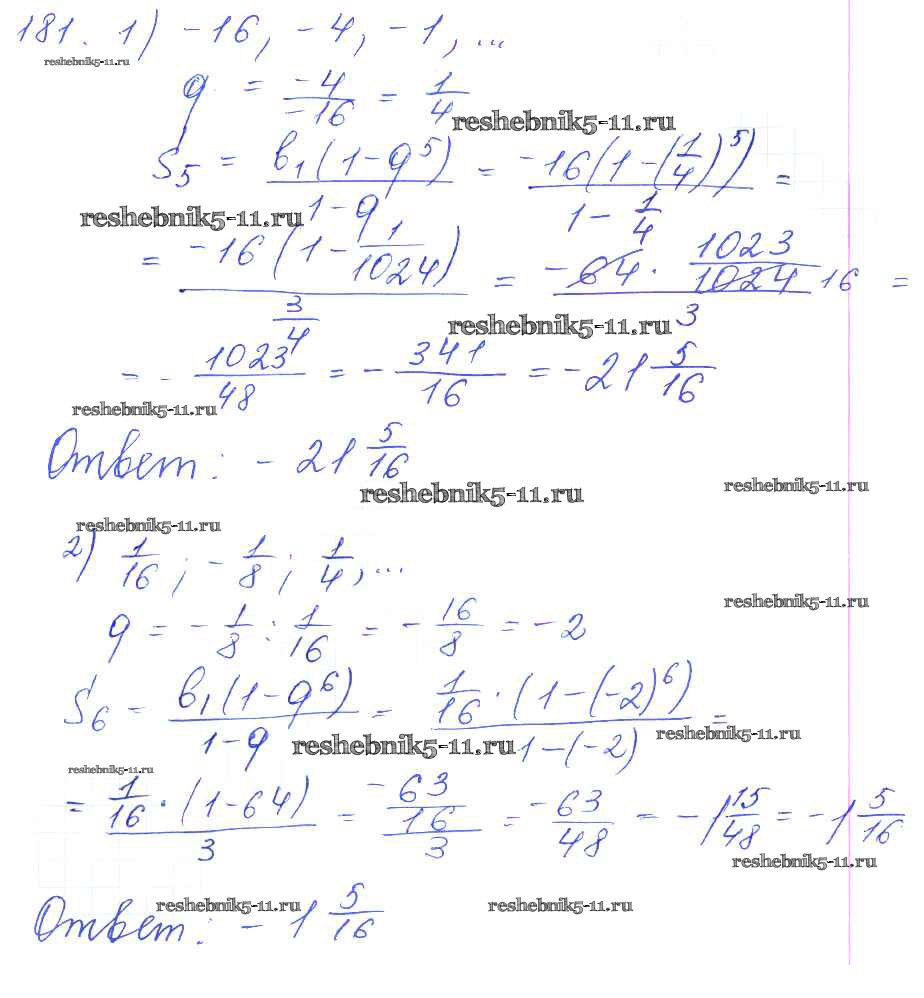 181. 1) -16, -4, -1, ...
reshebnik5-11.ru
q = -4/-16 = 1/4
reshebnik5-11.ru
S5 = b1(1-q^5)/1-q = -16(1-(1/4)^5)/1-1/4 =
reshebnik5-11.ru
= -16(1-1/1024)/3/4 = -64 · 1023/1024 16/3 =
reshebnik5-11.ru
= -1023/48 = -341/16 = -21 5/16
reshebnik5-11.ru
Ответ: -21 5/16
reshebnik5-11.ru
reshebnik5-11.ru
reshebnik5-11.ru
2) 1/16; -1/8; 1/4, ...
reshebnik5-11.ru
q = -1/8 : 1/16 = -16/8 = -2
S6 = b1(1-q^6)/1-q = 1/16 · (1-(-2)^6)/1-(-2) =
reshebnik5-11.ru
reshebnik5-11.ru
reshebnik5-11.ru
= 1/16 · (1-64)/3 = -63/16/3 = -63/48 = -1 15/48 = -1 5/16
reshebnik5-11.ru
reshebnik5-11.ru
reshebnik5-11.ru
Ответ: -1 5/16